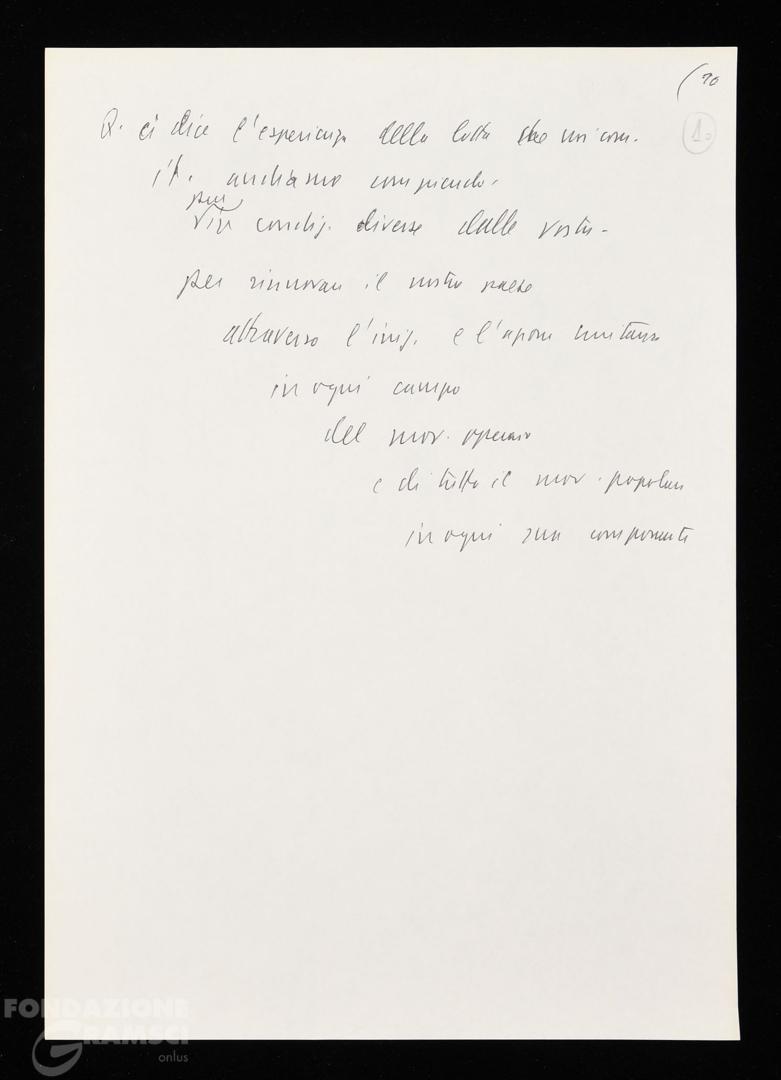 (10
10
Q. ci dice l'esperienza della lotta che noi com.
it. andiamo compiendo,
pur
in condiz. diverse dalle vostre -
per rinnovare il nostro paese
attraverso l'iniz. e l'azione unitaria
in ogni campo
del mov. operaio
e di tutto il mov. popolare
in ogni sua componente
FONDAZIONE
GRAMSCI
onlus